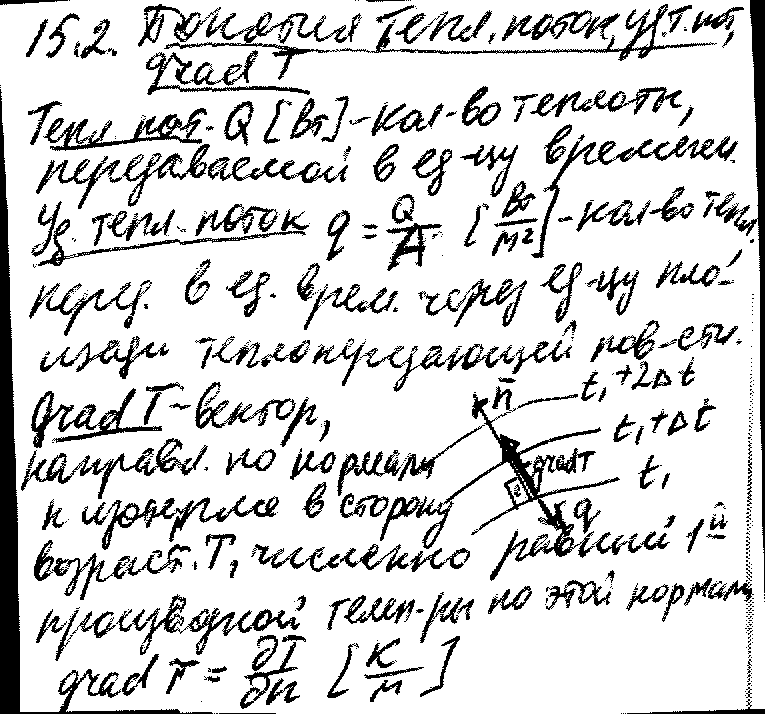 15.2. Понятия тепл. поток, уд. т. пот,
grad T
Тепл пот. Q [Вт] - кол-во теплоты,
передаваемой в ед-цу времени.
Уд. тепл. поток q = Q/A [Вт/м²] - кол-во тепл.
перед. в ед. врем. через ед-цу пло-
щади теплопередающей пов-сти.
grad T - вектор,
n̄ t₁+2Δt
направл. по нормали
t₁+Δt
grad T
t₁
к изотерме в сторону
q
возраст. T, численно равный 1й
производной темп-ры по этой нормали
grad T = ∂T/∂n [К/м]